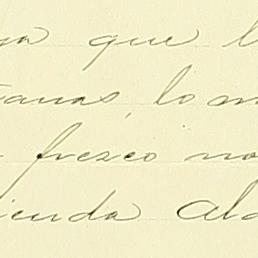 ya que l
tanas, lo m
fresco no
ienda Ala